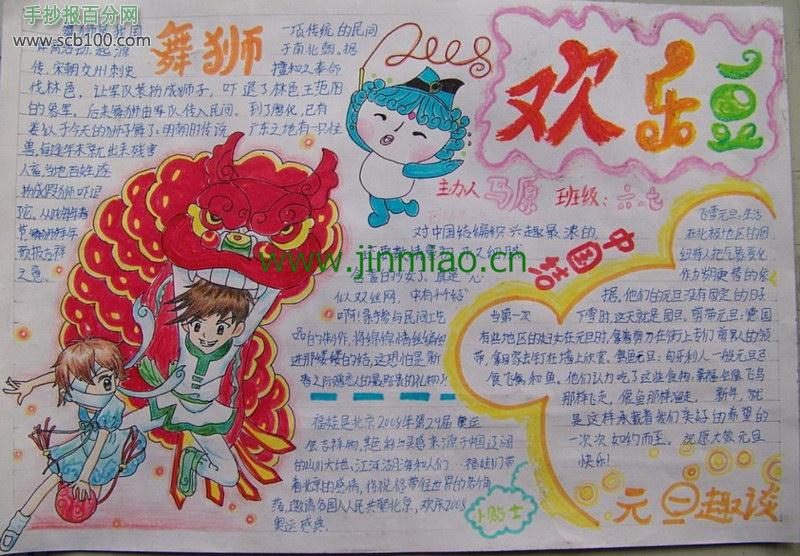 手抄报百分网
www.scb100.com
舞狮
一项传统的民间
于南北朝。据
传,宋朝交州刺史
檀和之奉命
伐林邑,让军队装扮成狮子,吓退了林邑王范阳
的象军。后来舞狮由军队传入民间。到了唐代,已有
类似于今天的狮子舞了。明朝时传说
广东之地有一只怪
兽,每逢年末就出来残害
人畜,当地百姓逐
扮成假狮吓退
它。从此每年春
节
敬报吉祥
之意。
2008
欢乐元旦
主办人 马原 班级:六.七
对中国结编织兴趣最浓的,
中国结
www.jinmiao.cn
似双丝网,中有千千结"
啊!亲情参与民间工艺
品的制作,将
进那缕缕的结,这恐怕是新
春之所
的最珍贵的礼物。
福娃是北京2008年第29届奥运
会吉祥物,
与灵感来源于中国辽阔
的山川大地、江河湖海和人们…福娃们带
着北京的盛情,将祝福带往世界的各个角
落,邀请各国人民共聚北京,欢乐2008
奥运盛典。
小贴士
飞雪元旦:生活
在北极地区的因
纽特人把气象变化
作为朔更替的依
据,他们的元旦没有固定的日子
当第一次
下雪时,这天就是元旦。剪带元旦:德国
有些地区的妇女在元旦时,拿着剪刀在街上专门剪男人的领
带,拿回家去钉在墙上欣赏。
元旦:匈牙利人一般元旦忌
食飞禽和鱼。他们认为吃了这些食物,幸福会像飞鸟
那样飞走,像鱼那样溜走。
新年,就
是这样承载着我们美好的希望的
一次次如约而至。祝愿大家元旦
快乐!
元旦趣谈